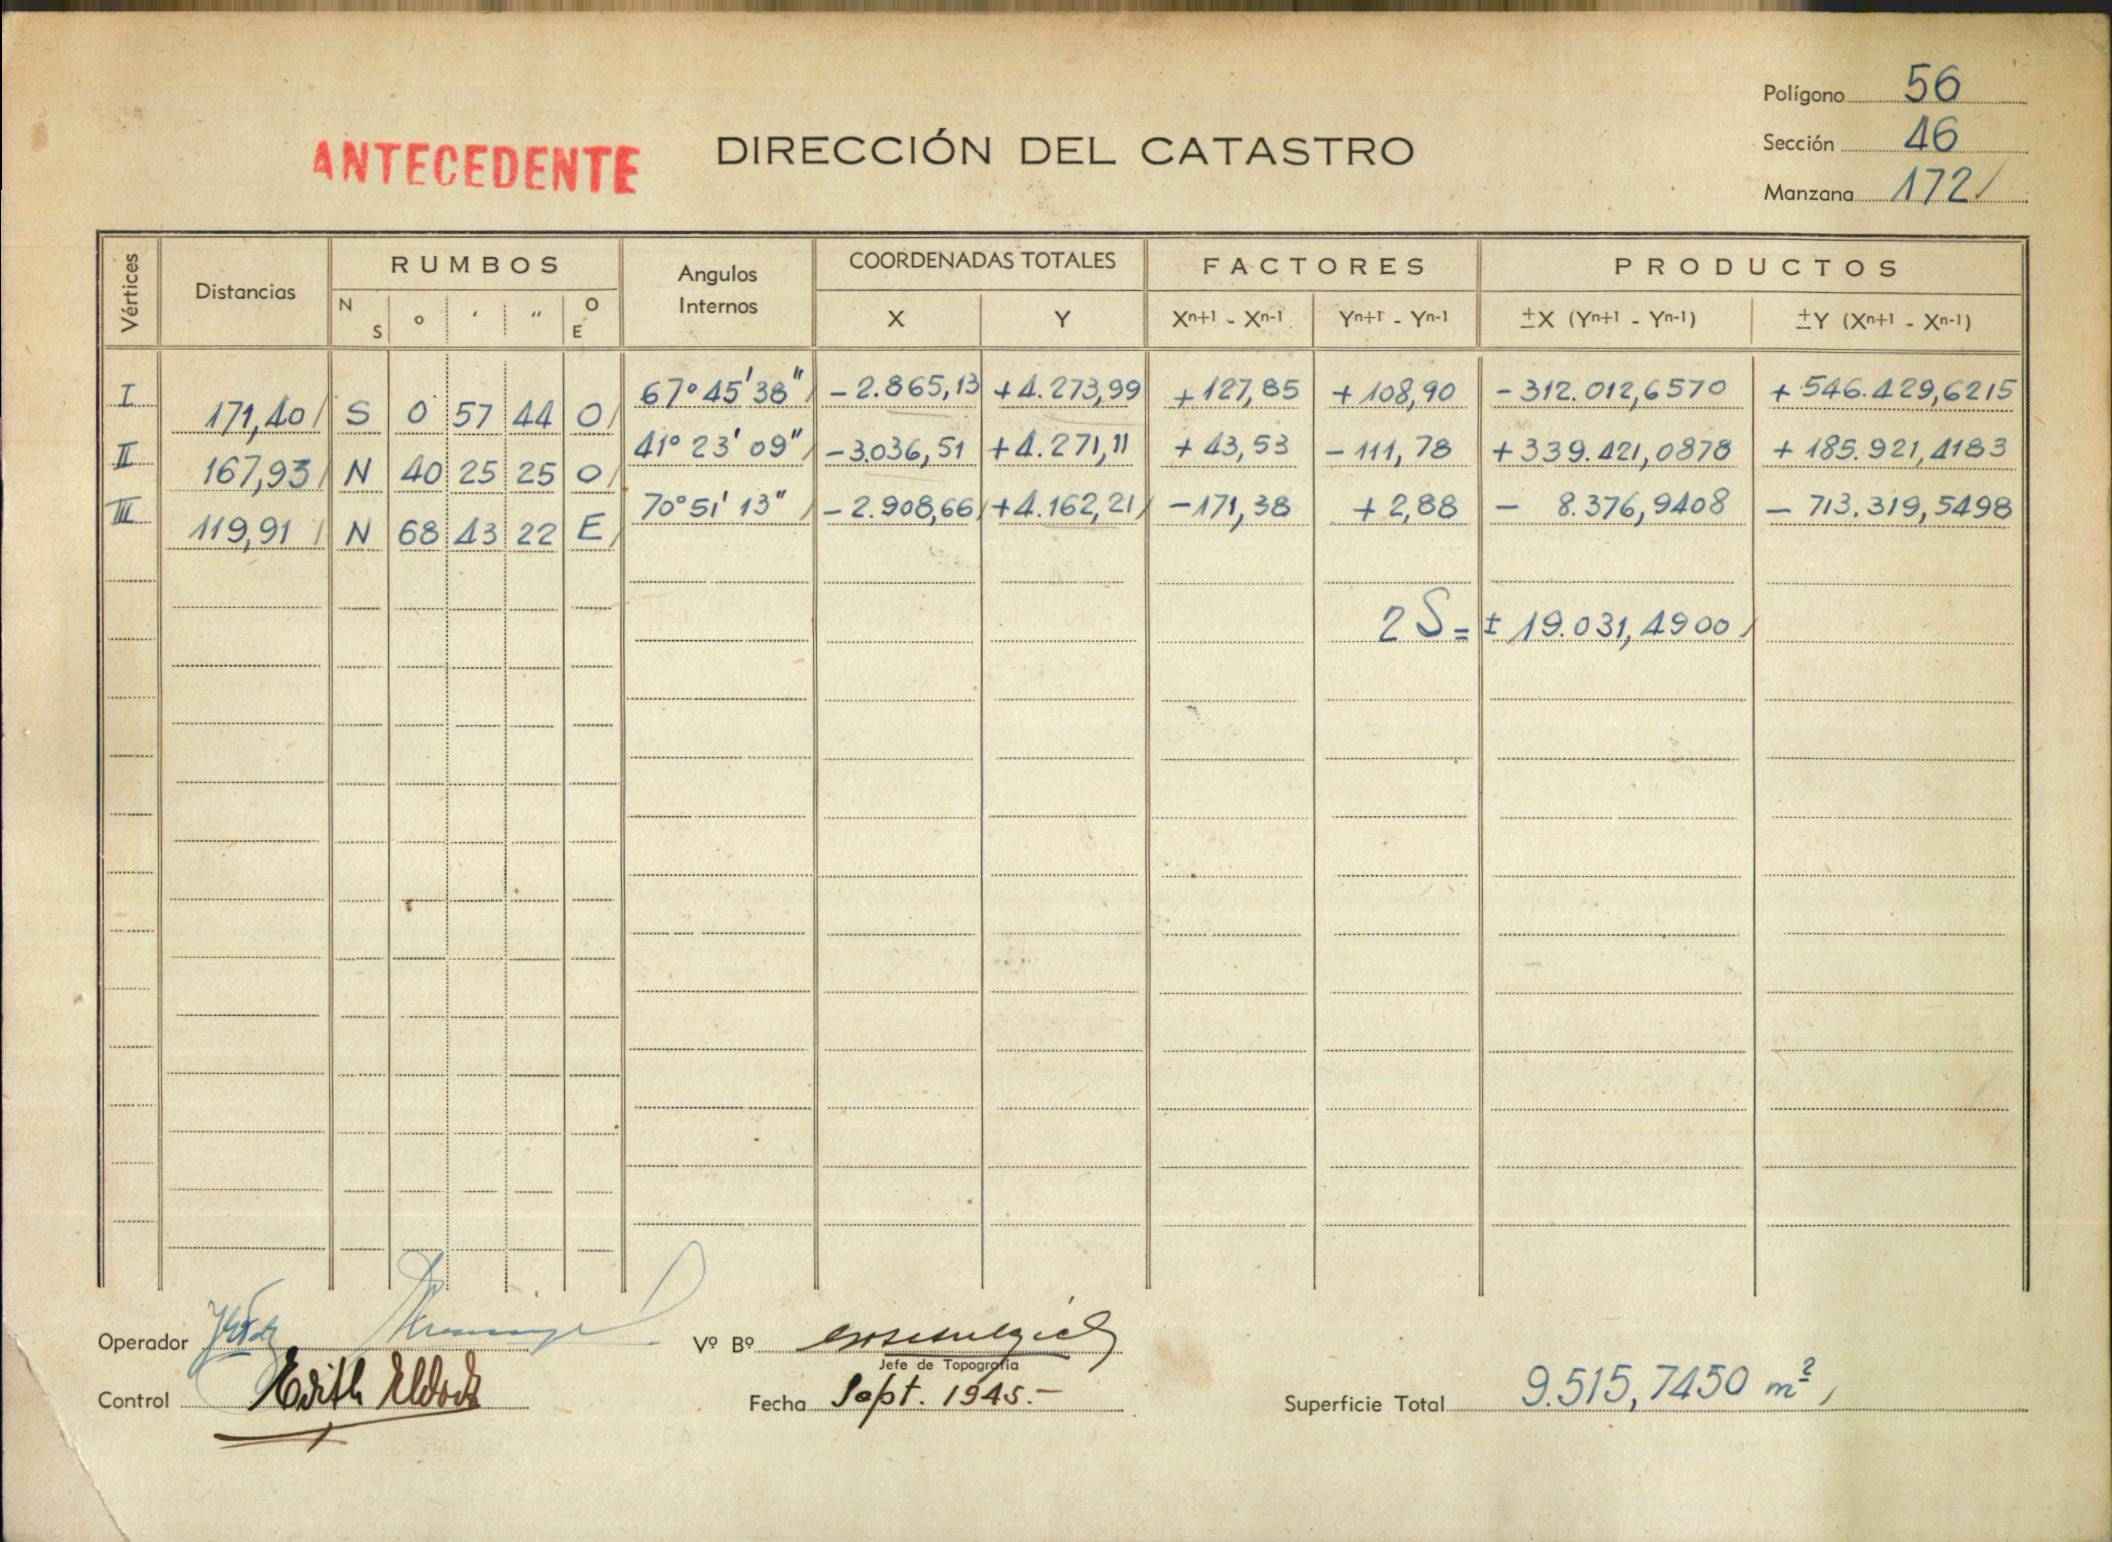 Polígono 56
ANTECEDENTE DIRECCIÓN DEL CATASTRO
Sección 46
Manzana 172/
Vértices Distancias RUMBOS Angulos Internos COORDENADAS TOTALES FACTORES PRODUCTOS
N S o ' " O E X Y Xn+1 - Xn-1 Yn+1 - Yn-1 ±X (Yn+1 - Yn-1) ±Y (Xn+1 - Xn-1)
I 67° 45' 38" / - 2.865,13 + 4.273,99 + 127,85 + 108,90 - 312.012,6570 + 546.429,6215
171,40 / S 0 57 44 O /
II 41° 23' 09" / - 3.036,51 + 4.271,11 + 43,53 - 111,78 + 339.421,0878 + 185.921,4183
167,93 / N 40 25 25 O /
III 70° 51' 13" / - 2.908,66 / + 4.162,21 / - 171,38 + 2,88 - 8.376,9408 - 713.319,5498
119,91 / N 68 43 22 E /
2 S = ± 19.031,4900 /
Operador Vº Bº
Jefe de Topografía
Control Edith Fecha Sept. 1945.- Superficie Total 9.515,7450 m² /